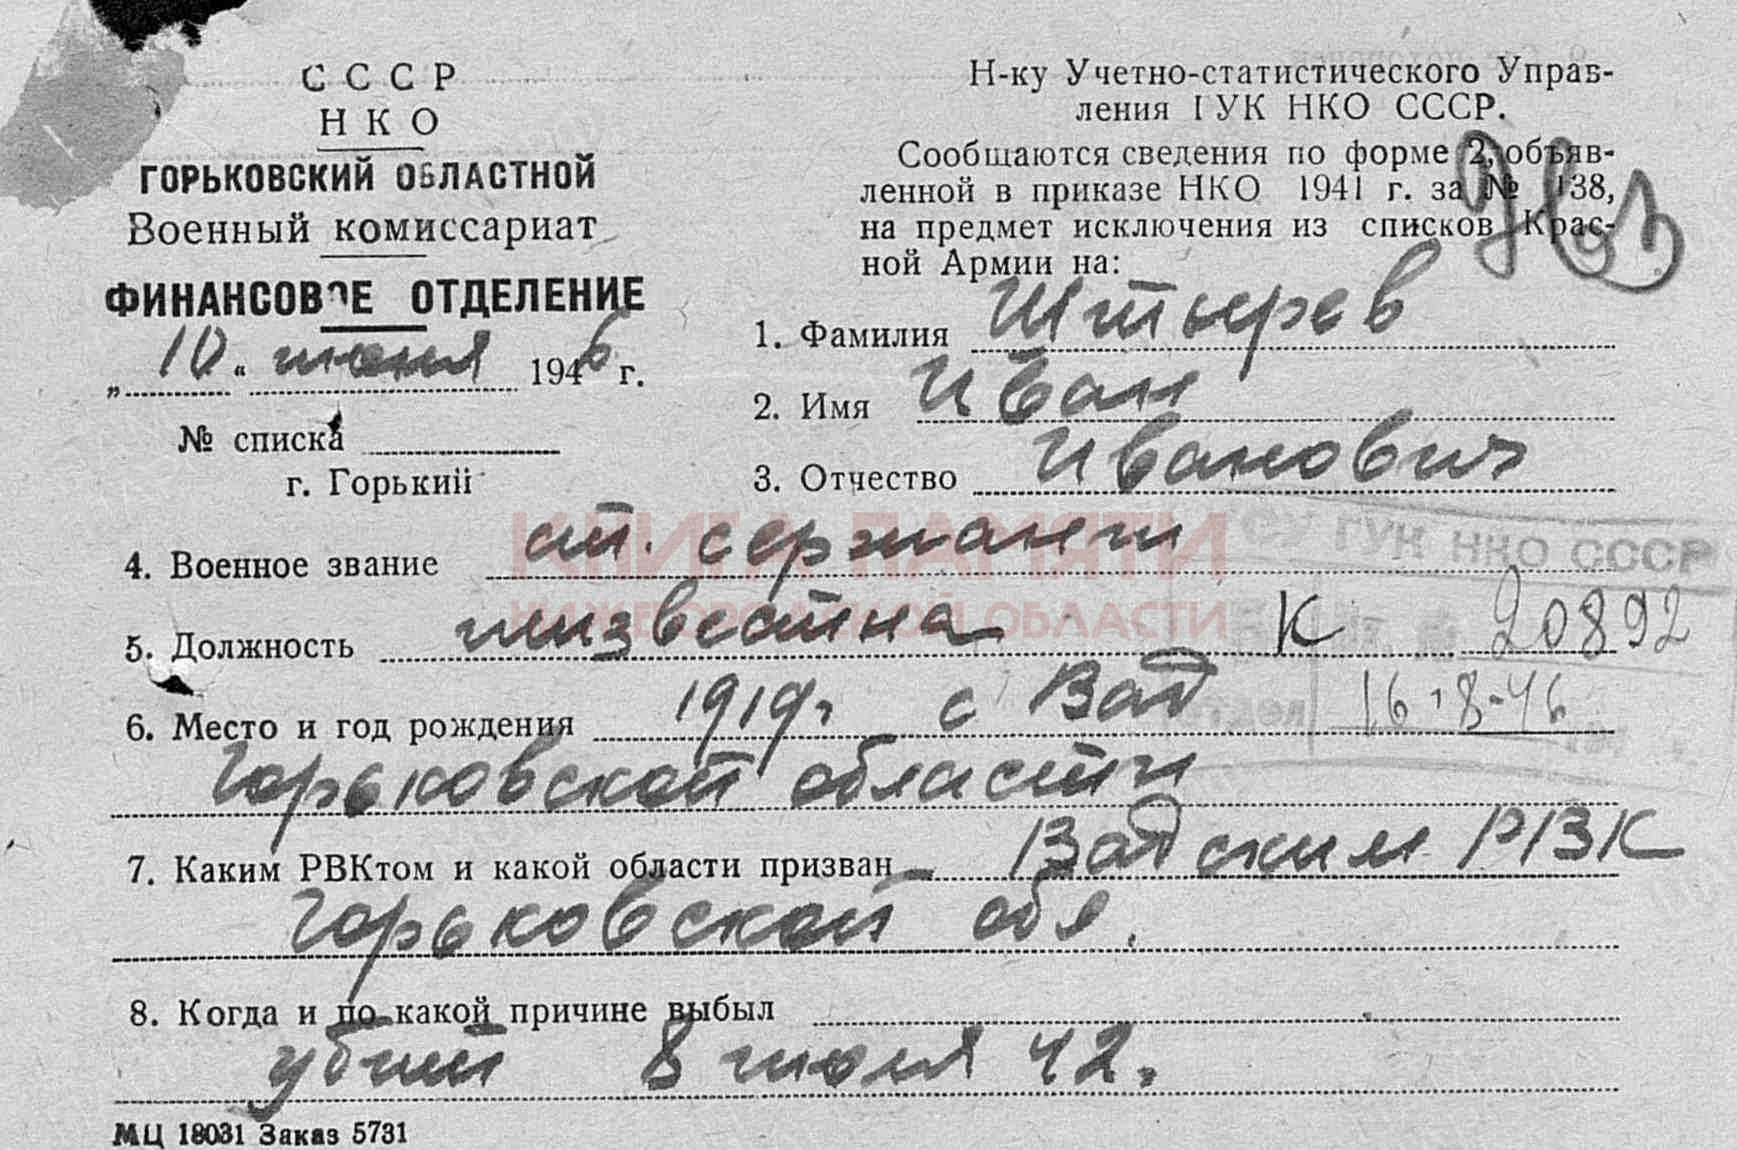 С С С Р
Н К О
ГОРЬКОВСКИЙ ОБЛАСТНОЙ
Военный комиссариат
ФИНАНСОВОЕ ОТДЕЛЕНИЕ
„ 10 “ июня 1946 г.
№ списка
г. Горький
Н-ку Учетно-статистического Управ-
ления ГУК НКО СССР.
Сообщаются сведения по форме 2, объяв-
ленной в приказе НКО 1941 г. за № 138,
на предмет исключения из списков Крас-
ной Армии на:
1. Фамилия Штырев
2. Имя Иван
3. Отчество Иванович
ГУК НКО СССР
4. Военное звание ст. сержант
КНИГА ПАМЯТИ
НИЖЕГОРОДСКОЙ ОБЛАСТИ
5. Должность неизвестна К 20892
6. Место и год рождения 1919г с Вад 16-8-46
Горьковской области
7. Каким РВКтом и какой области призван Вадским РВК
Горьковской обл.
8. Когда и по какой причине выбыл
убит 8 июля 42.
МЦ 18031 Заказ 5731